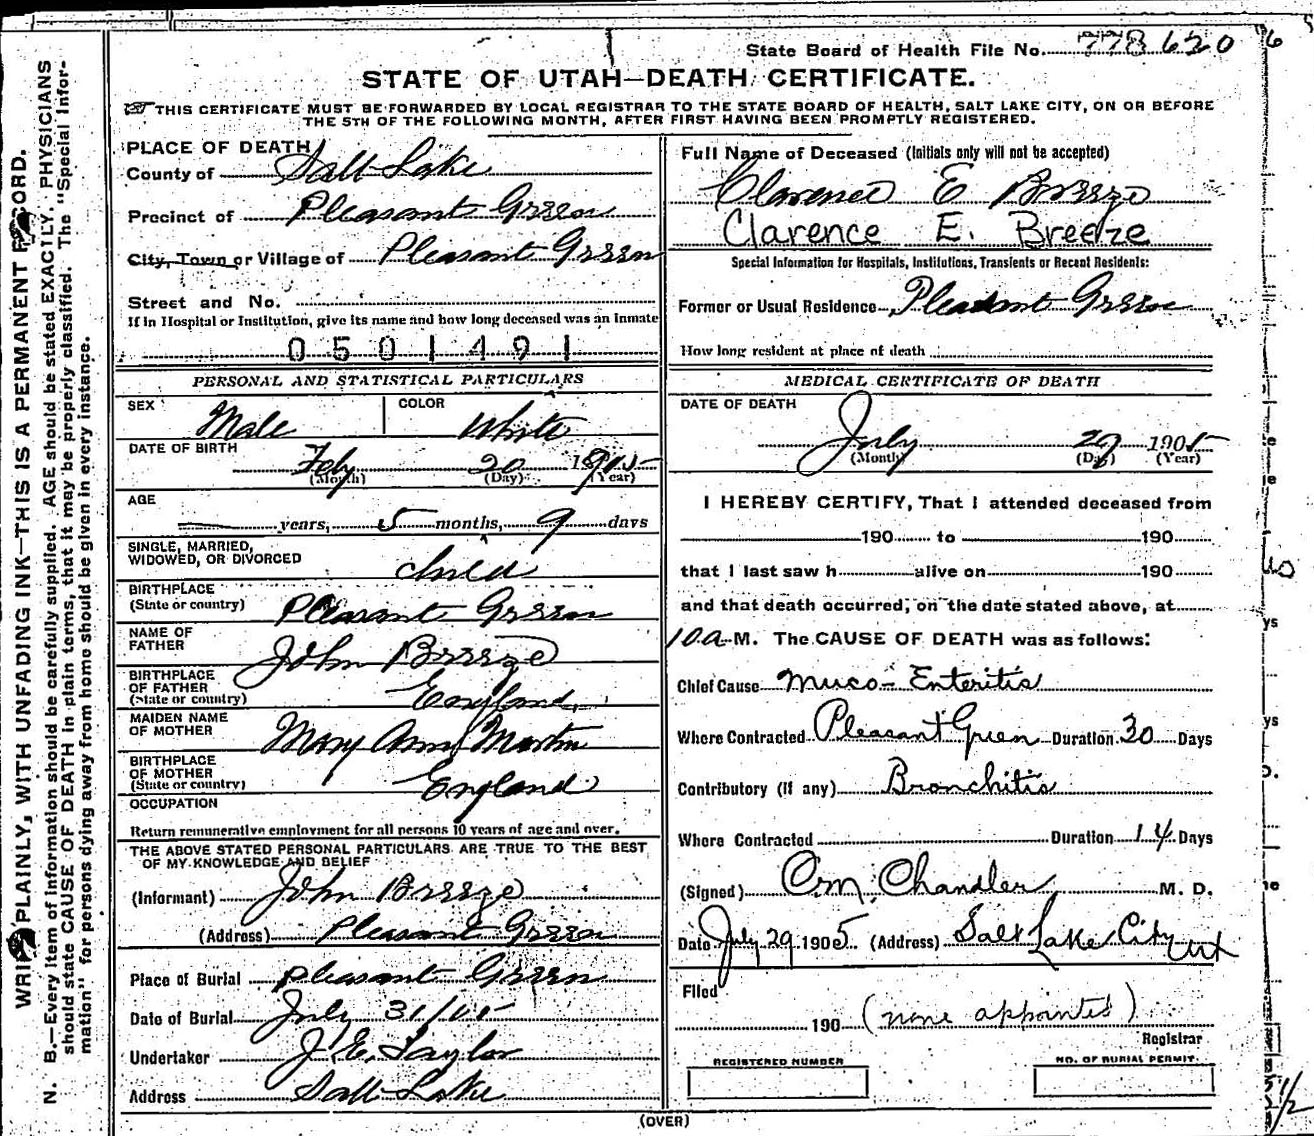 State Board of Health File No. 778 620
STATE OF UTAH—DEATH CERTIFICATE.
THIS CERTIFICATE MUST BE FORWARDED BY LOCAL REGISTRAR TO THE STATE BOARD OF HEALTH, SALT LAKE CITY, ON OR BEFORE
THE 5TH OF THE FOLLOWING MONTH, AFTER FIRST HAVING BEEN PROMPTLY REGISTERED.
WRITE PLAINLY, WITH UNFADING INK—THIS IS A PERMANENT RECORD.
N. B.—Every item of information should be carefully supplied. AGE should be stated EXACTLY. PHYSICIANS
should state CAUSE OF DEATH in plain terms, that it may be properly classified. The "Special Infor-
mation" for persons dying away from home should be given in every instance.
PLACE OF DEATH
County of Salt Lake
Precinct of Pleasant Green
City, Town or Village of Pleasant Green
Street and No.
If in Hospital or Institution, give its name and how long deceased was an inmate
0501491
PERSONAL AND STATISTICAL PARTICULARS
SEX Male COLOR White
DATE OF BIRTH
Feb 20 1905
(Month) (Day) (Year)
AGE
— years, 5 months, 9 days
SINGLE, MARRIED,
WIDOWED, OR DIVORCED child
BIRTHPLACE
(State or country) Pleasant Green
NAME OF
FATHER John Breeze
BIRTHPLACE
OF FATHER
(State or country) England
MAIDEN NAME
OF MOTHER Mary Ann Martin
BIRTHPLACE
OF MOTHER
(State or country) England
OCCUPATION
Return remunerative employment for all persons 10 years of age and over.
THE ABOVE STATED PERSONAL PARTICULARS ARE TRUE TO THE BEST
OF MY KNOWLEDGE AND BELIEF
(Informant) John Breeze
(Address) Pleasant Green
Place of Burial Pleasant Green
Date of Burial July 31/05
Undertaker J. E. Taylor
Address Salt Lake
Full Name of Deceased (Initials only will not be accepted)
Clarence E Breeze
Clarence E. Breeze
Special Information for Hospitals, Institutions, Transients or Recent Residents:
Former or Usual Residence Pleasant Green
How long resident at place of death
MEDICAL CERTIFICATE OF DEATH
DATE OF DEATH
July 29 1905
(Month) (Day) (Year)
I HEREBY CERTIFY, That I attended deceased from
190 to 190
that I last saw h alive on 190
and that death occurred, on the date stated above, at
10 a M. The CAUSE OF DEATH was as follows:
Chief Cause Muco-Enteritis
Where Contracted Pleasant Green Duration 30 Days
Contributory (If any) Bronchitis
Where Contracted Duration 14 Days
(Signed) Chandler M. D.
Date July 29 1905 (Address) Salt Lake City Ut
Filed
190 (none appointed)
Registrar
REGISTERED NUMBER
NO. OF BURIAL PERMIT
(OVER)